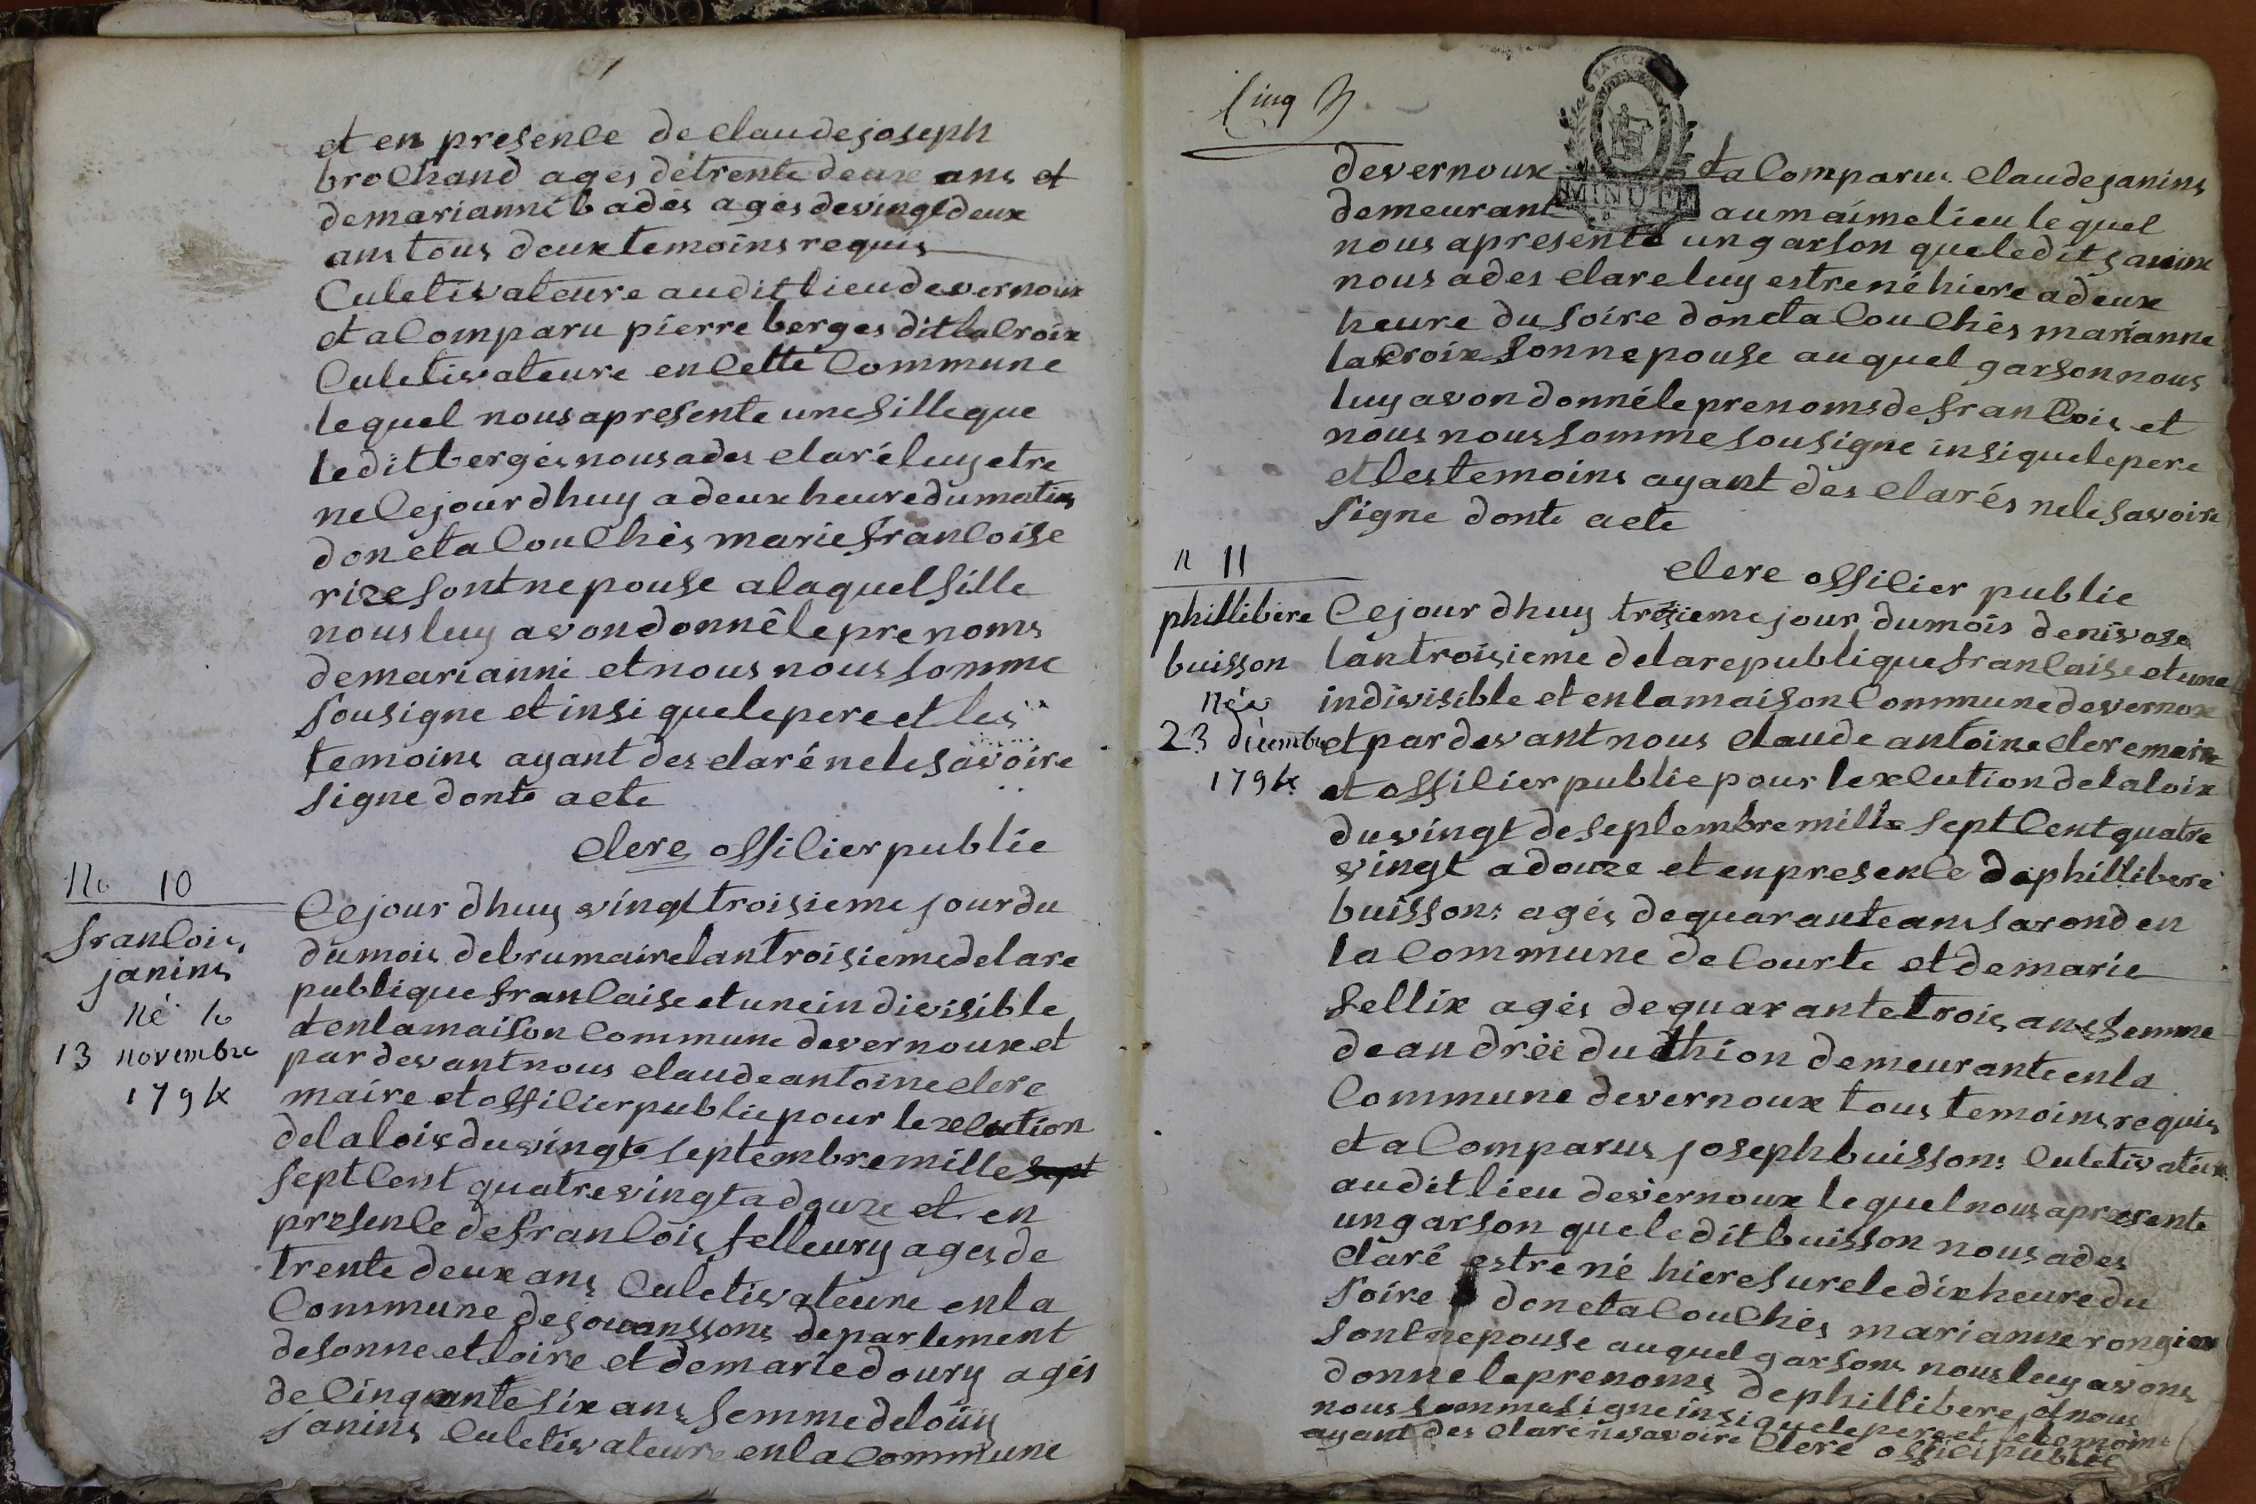 et en presence de claude joseph
brochand agés de trente deux ans et
de marianne badès agés de vingt deux
ans tous deux temoins requis
Culetivateure audit lieu de vernoux
et a Comparu pierre berges dit lacroix
Culetivateure en Cette Commune
lequel nous a presente une fille que
ledit bergés nous a des claré luy etre
ne Cejourdhuy a deux heure du matin
donct a Couchès marie francoise
rize sont nepouse a laquel fille
nous luy avon donné le pre noms
de marianne et nous nous somme
sousigne et insi que le pere et les
temoins ayant des claré ne le savoire
signe donte acte
clere officier public
No 10
francois
janins
Né le
13 novembre
1794
Cejourdhuy vingt troisieme jour du
du mois de brumaire lan troisieme de la re
publique francaise et une indivisible
et en la maison Commune de vernoux et
par devant nous claude antoine clere
maire et officier public pour lexcution
de la loix du vingt septembre mille sept
sept Cent quatre vingt a douze et en
presence de francois felleury ages de
trente deux ans Culetivateure en la
Commune de departement
de sonne et loire et de marie doury agés
de Cinquante six ans femme de louis
janins Culetivateure en la Commune
Cinq
LA
MINUTE
de vernoux et a Comparus claude janins
demeurant au maime lieu le quel
nous a presente un garson que ledit janins
nous a des clare luy estre né hiere a deux
heure du soire donct a Couchès marianne
lacroix sonnepouse au quel garson nous
luy avon donné le prenoms de francois et
nous nous somme sousigne insi que le pere
et les temoins ayant des clarés ne le savoire
signe donte acte
clere officier public
n 11
phillibere
buisson
Née
23 décembre
1794
Cejourdhuy troisieme jour du mois de nivose
lan troisieme de la republique francaise et une
indivisible et en la maison Commune de vernox
et par devant nous claude antoine clere maire
et officier public pour lexcution de la loix
du vingt de septembre mille sept Cent quatre
vingt a douze et en presence de phillibere
buissons agés de quarante ans sarond en
la Commune de Courte et de marie
fellix agés de quarante trois ans femme
de andréé duthion demeurante en la
Commune de vernoux tous temoins requis
et a Comparus joseph buissons Culetivateure
audit lieu de vernoux le quel nous a presente
un garson que ledit buisson nous a des
claré estre né hiere sure le dix heure du
soire donct a Couchés marianne
sont nepouse au quel garsons nous luy avons
donne le prenoms de phillibere et nous
nous somme signe insi que le pere et temoins
ayant des claré ne savoire clere offici public